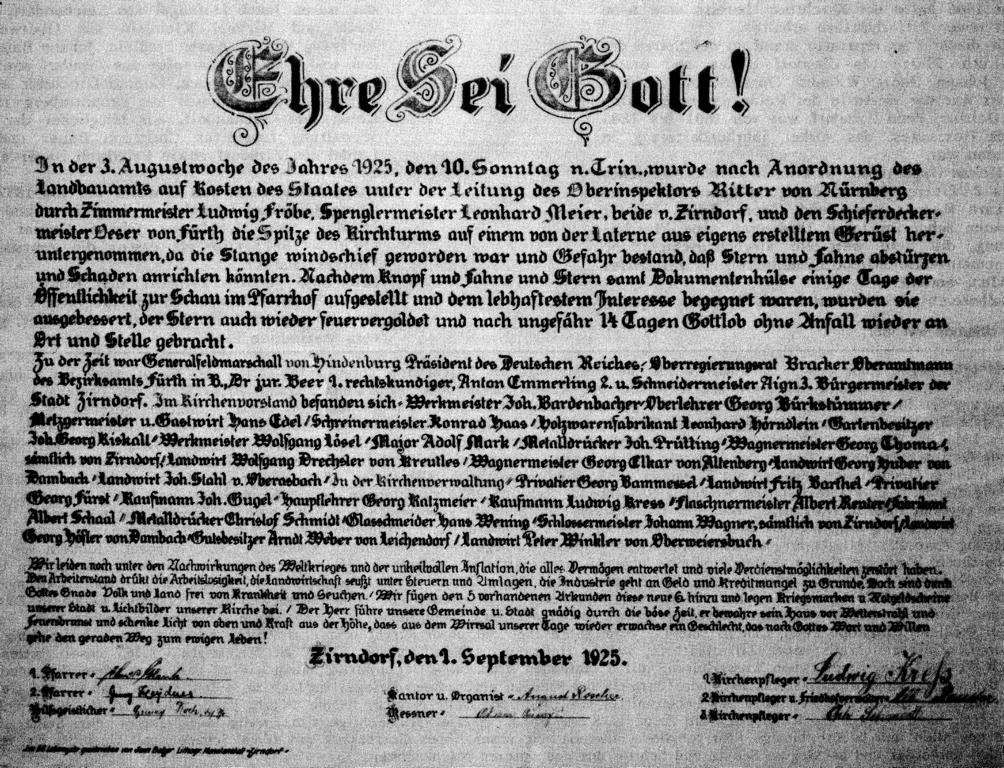 Ehre Sei Gott!
In der 3. Augustwoche des Jahres 1925, den 10. Sonntag n. Trin., wurde nach Anordnung des
Landbauamts auf Kosten des Staates unter der Leitung des Oberinspektors Ritter von Nürnberg
durch Zimmermeister Ludwig Fröbe, Spenglermeister Leonhard Meier, beide v. Zirndorf, und den Schieferdecker-
meister Oeser von Fürth die Spitze des Kirchturms auf einem von der Laterne aus eigens erstelltem Gerüst her-
untergenommen, da die Stange windschief geworden war und Gefahr bestand, daß Stern und Fahne abstürzen
und Schaden anrichten könnten. Nachdem Knopf und Fahne und Stern samt Dokumentenhülse einige Tage der
Öffentlichkeit zur Schau im Pfarrhof aufgestellt und dem lebhaftestem Interesse begegnet waren, wurden sie
ausgebessert, der Stern auch wieder feuervergoldet und nach ungefähr 14 Tagen Gottlob ohne Unfall wieder an
Ort und Stelle gebracht.
Zu der Zeit war Generalfeldmarschall von Hindenburg Präsident des Deutschen Reiches, Oberregierungsrat Bracker Oberamtmann
des Bezirksamts Fürth in B., Dr jur. Beer 1. rechtskundiger, Anton Emmerling 2. u. Schneidermeister Aign 3. Bürgermeister der
Stadt Zirndorf. Im Kirchenvorstand befanden sich - Werkmeister Joh. Bardenbacher - Oberlehrer Georg Bürkstümmer /
Metzgermeister u. Gastwirt Hans Edel / Schreinermeister Konrad Haas / Holzwarenfabrikant Leonhard Hörndlein / Gartenbesitzer
Joh. Georg Riskall / Werkmeister Wolfgang Lösel / Major Adolf Mark / Metalldrücker Joh. Prütting / Wagnermeister Georg Thoma /
sämtlich von Zirndorf / Landwirt Wolfgang Drechsler von Kreutles / Wagnermeister Georg Elkar von Altenberg - Landwirt Georg Huber von
Dambach / Landwirt Joh. Stahl v. Oberasbach / In der Kirchenverwaltung / Privatier Georg Bammessel / Landwirt Fritz Barthel / Privatier
Georg Fürst / Kaufmann Joh. Gugel - Hauptlehrer Georg Katzmeier / Kaufmann Ludwig Kress / Flaschnermeister Albert Reuter / Fabrikant
Albert Schaal / Metalldrücker Christof Schmidt - Glasschneider Hans Wening / Schlossermeister Johann Wagner, sämtlich von Zirndorf / Landwirt
Georg Höfler von Dambach - Gutsbesitzer Arndt Weber von Leichendorf / Landwirt Peter Winkler von Oberweiersbuch -
Wir leiden noch unter den Nachwirkungen des Weltkrieges und der unheilvollen Inflation, die alles Vermögen entwertet und viele Verdienstmöglichkeiten zerstört haben.
Den Arbeiterstand drükt die Arbeitslosigkeit, die Landwirtschaft seufzt unter Steuern und Umlagen, die Industrie geht an Geld und Kreditmangel zu Grunde. Noch sind durch
Gottes Gnade Volk und Land frei von Krankheit und Seuchen. / Wir fügen den 5 vorhandenen Urkunden diese neue 6. hinzu und legen Kriegsmarken u. Notgeldscheine
unserer Stadt u. Lichtbilder unserer Kirche bei. / Der Herr führe unsere Gemeinde u. Stadt gnädig durch die böse Zeit, er bewahre sein Haus vor Wetterstrahl und
Feuerbrunst und schenke Licht von oben und Kraft aus der Höhe, dass aus dem Wirrsal unserer Tage wieder erwachse ein Geschlecht, das nach Gottes Wort und Willen
gehe den geraden Weg zum ewigen Leben!
Zirndorf, den 1. September 1925.
1. Pfarrer -
2. Pfarrer -
Hilfsgeistlicher -
Kantor u. Organist -
Messner -
1. Kirchenpfleger - Ludwig Kreß
2. Kirchenpfleger u. Friedhofverwalter
3. Kirchenpfleger -